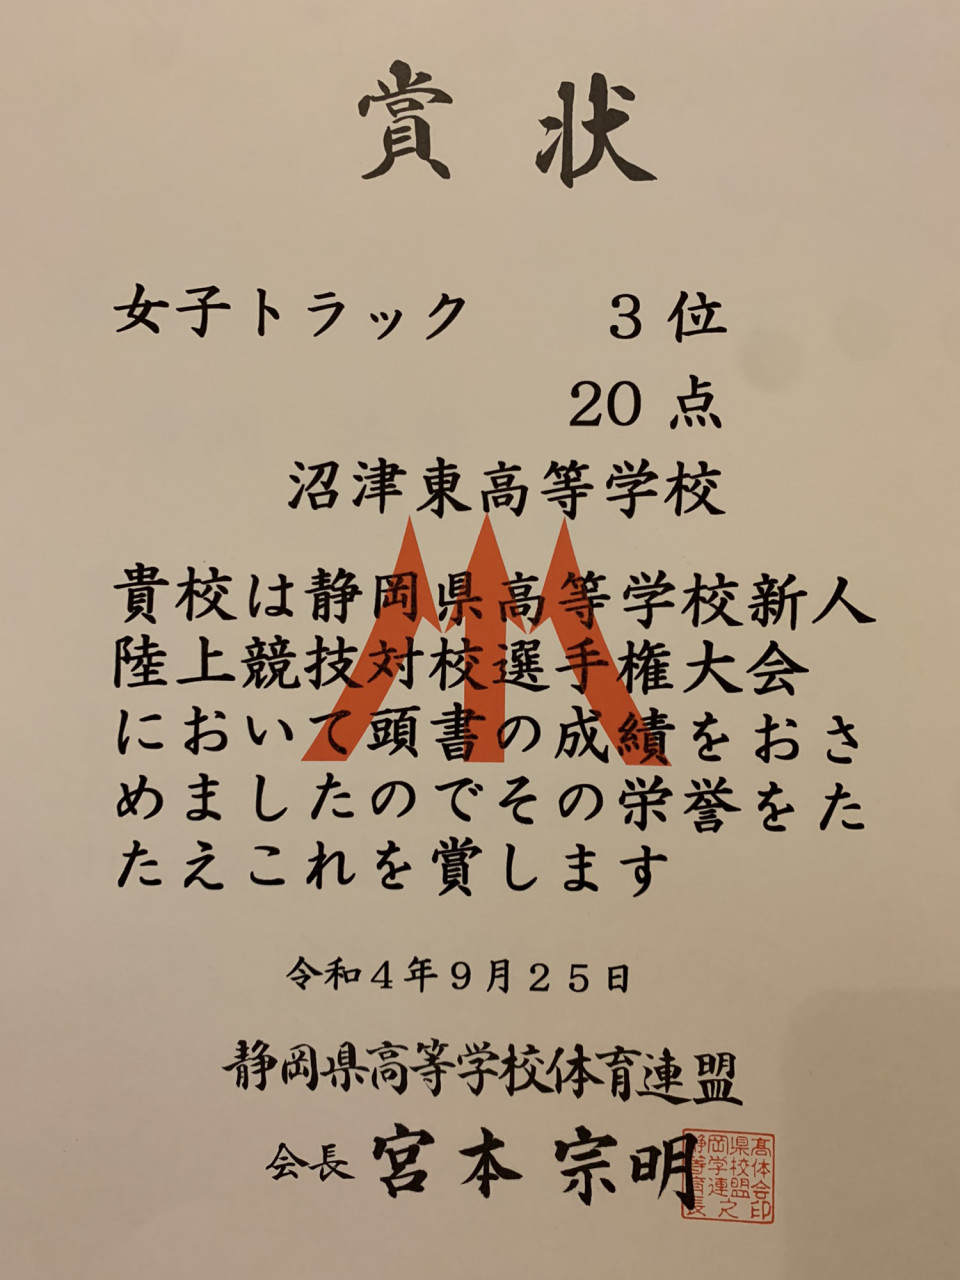 賞状
女子トラック 3位
20点
沼津東高等学校
貴校は静岡県高等学校新人
陸上競技対校選手権大会
において頭書の成績をおさ
めましたのでその栄誉をた
たえこれを賞します
令和4年9月25日
静岡県高等学校体育連盟
会長 宮本宗明
静岡県高
等学校体
育連盟会
長之印